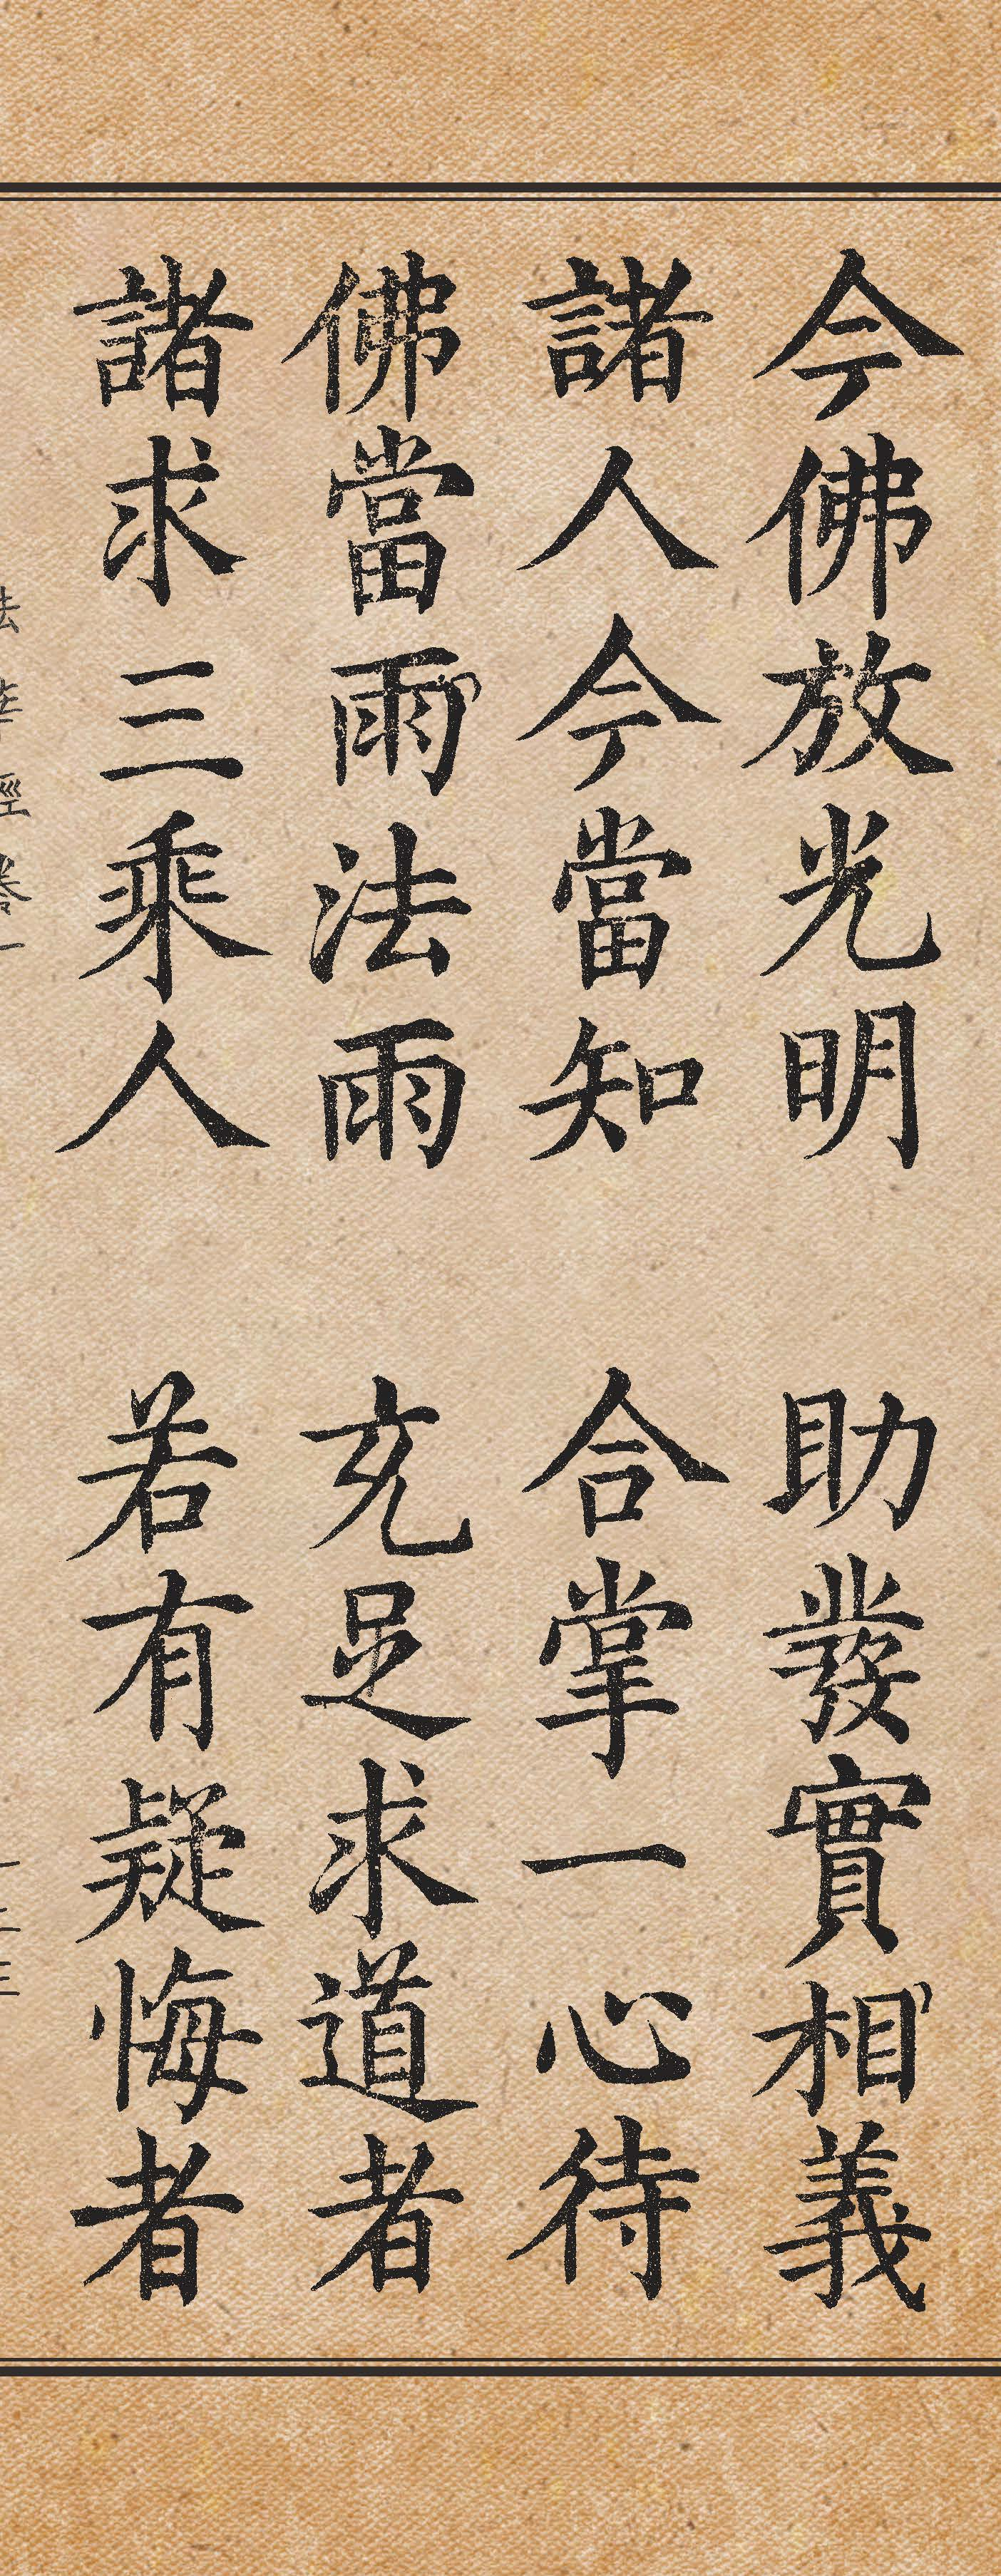 今佛放光明 助發實相義
諸人今當知 合掌一心待
佛當雨法雨 充足求道者
諸求三乘人 若有疑悔者
法華經卷一 一二三